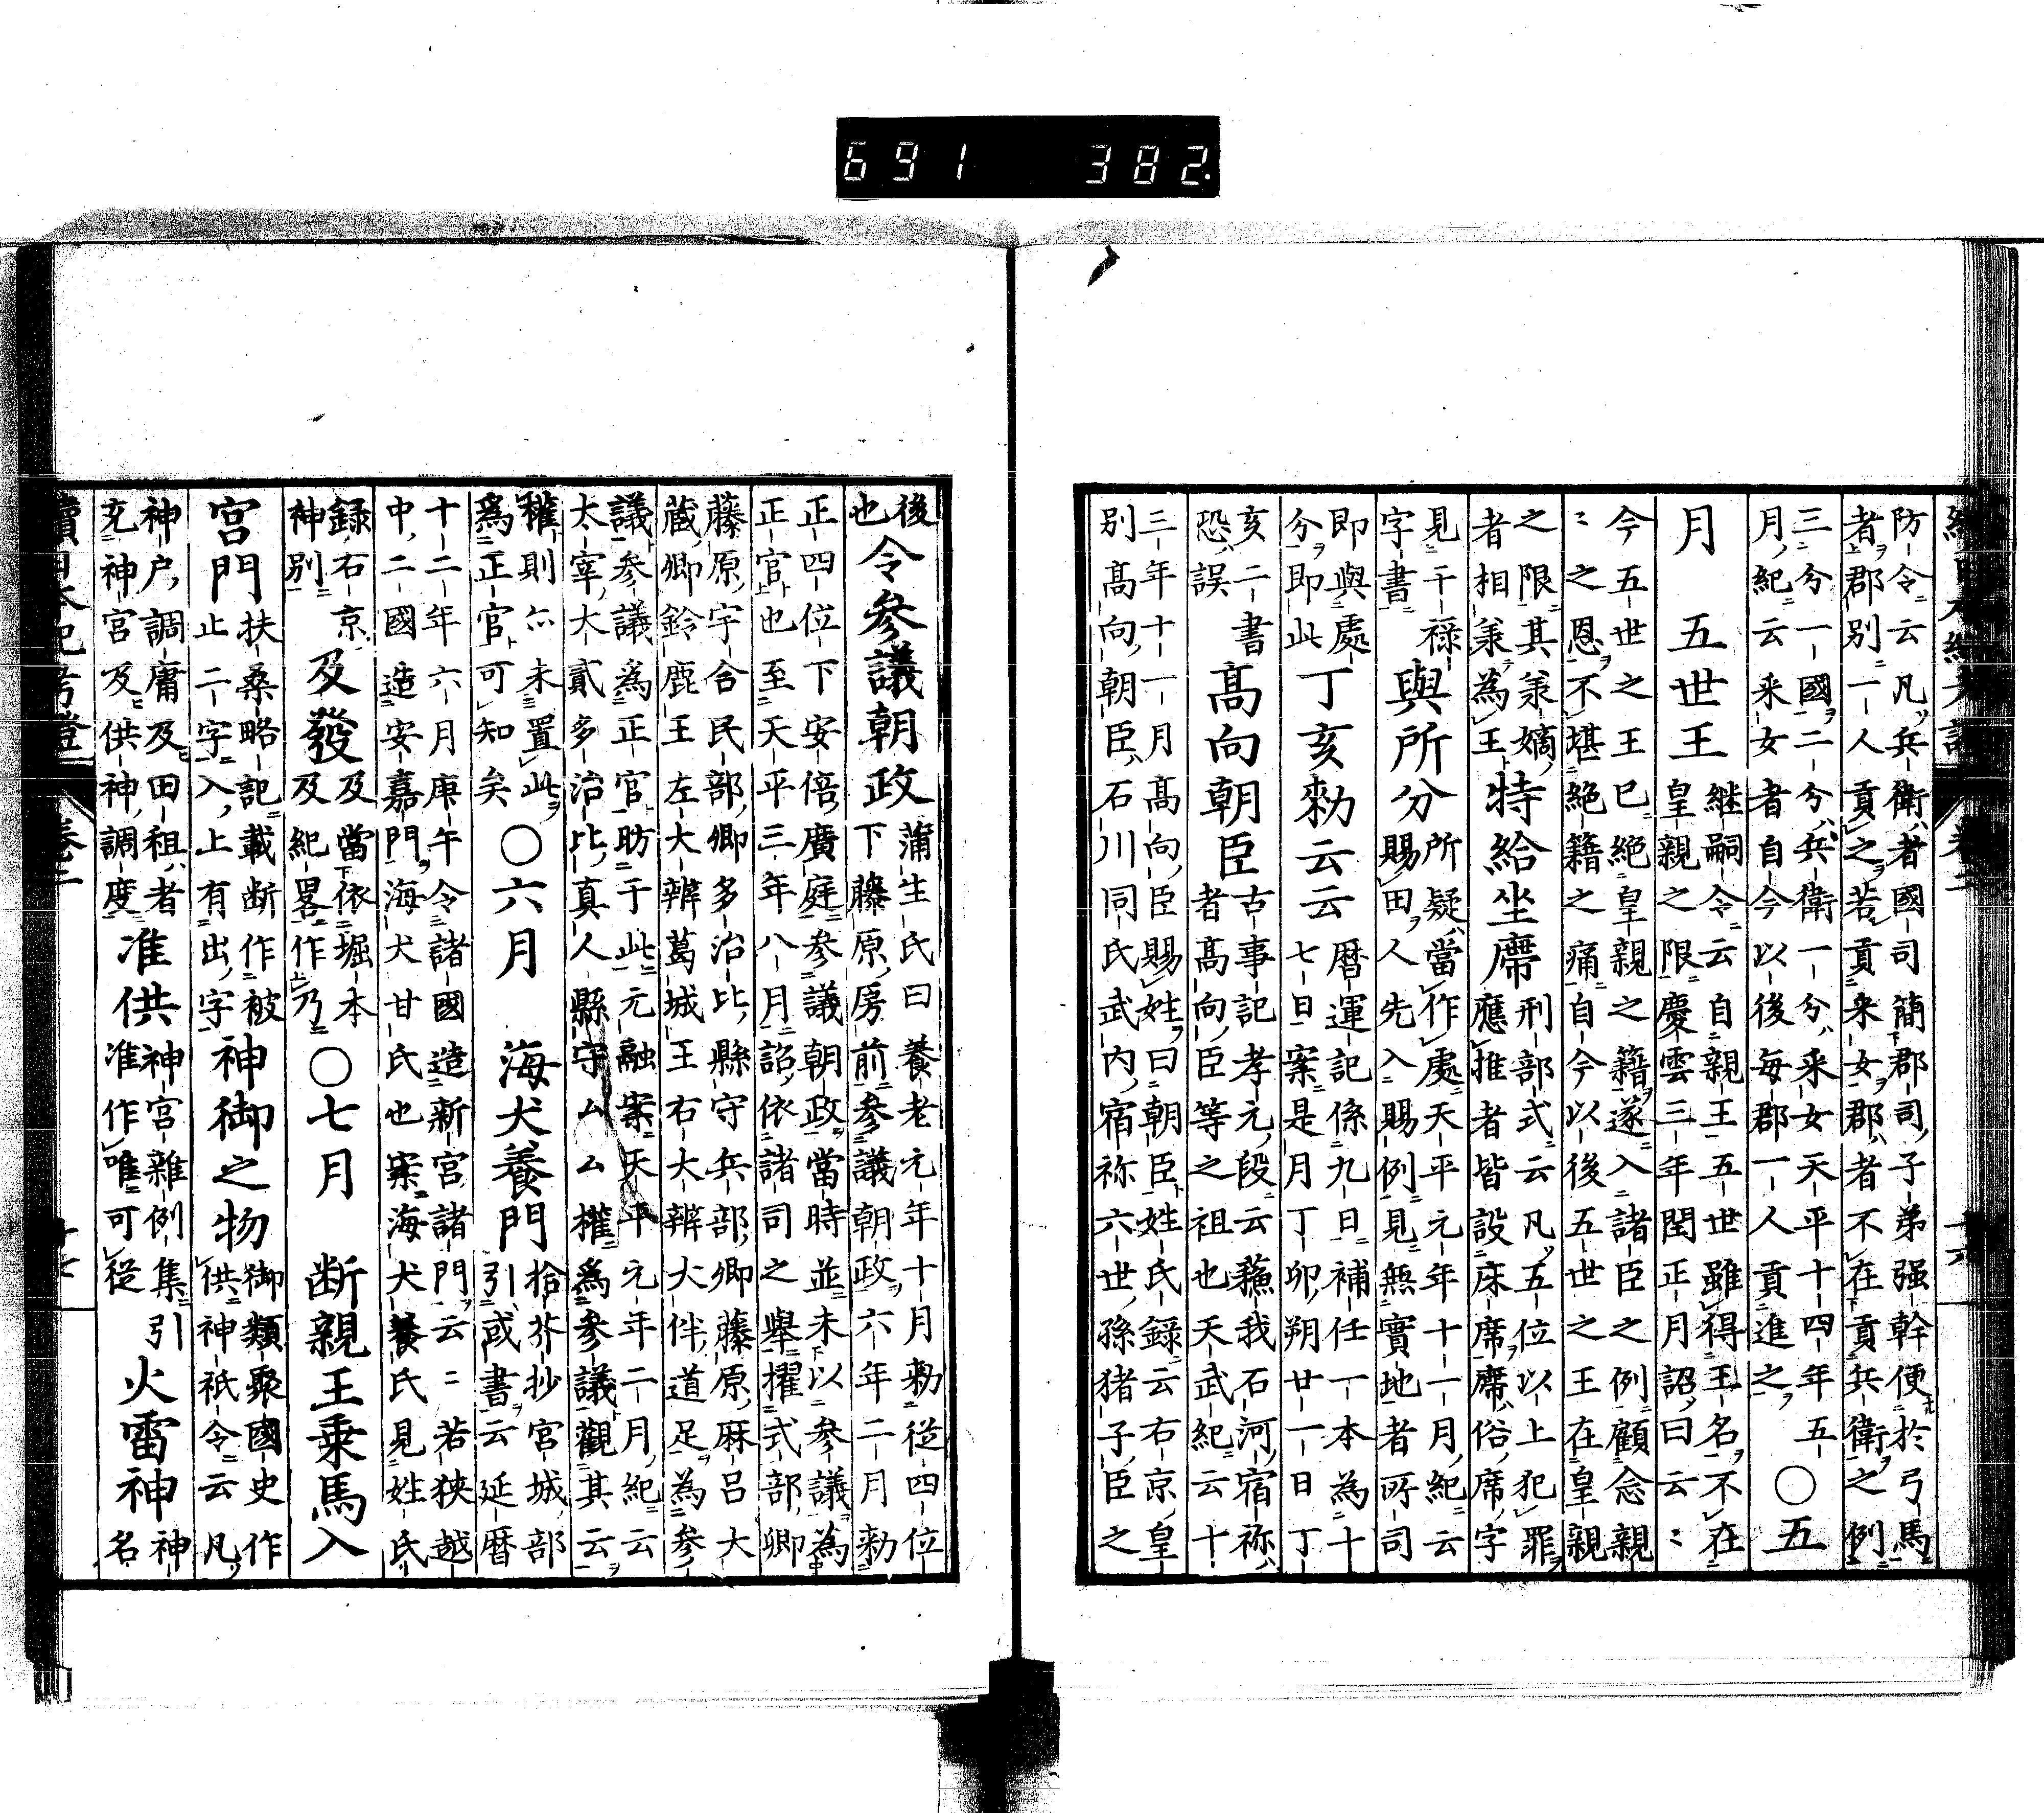 防令云凡兵衛者國司簡郡司子弟强幹便於弓馬
者郡別一人貢之若貢采女郡者不在貢兵衛之例
三分一國二分兵衛一分采女天平十四年五
月紀云采女者自今以後毎郡一人貢進之
○五
月　五世王
継嗣令云自親王五世雖得王名不在
皇親之限慶雲三年閏正月詔曰云〻
今五世之王已絶皇親之籍遂入諸臣之例顧念親
〻之恩不堪絶籍之痛自今以後五世之王在皇親
之限其𣴎嫡
者相𣴎為王
特給坐席
刑部式云凡五位以上犯罪
應推者皆設床席席俗席字
見干禄
字書
與所分
所疑當作處天平元年十一月紀云
賜田人先入賜例見無實地者所司
即與處
分即此
丁亥勑云云
暦運記係九日補任一本為十
七日案是月丁卯朔廿一日丁
亥二書
恐誤
髙向朝臣
古事記孝元段云蘓我石河宿祢
者髙向臣等之祖也天武紀云十
三年十一月髙向臣賜姓曰朝臣姓氏録云右京皇
別髙向朝臣石川同氏武内宿祢六世孫猪子臣之
後
也
令參議朝政
蒲生氏曰養老元年十月勑從四位
下藤原房前參議朝政六年二月勑
正四位下安倍廣庭參議朝政當時並未以參議為
正官也至天平三年八月詔依諸司之舉擢式部卿
藤原宇合民部卿多治比縣守兵部卿藤原麻呂大
藏卿鈴鹿王左大辨葛城王右大辨大伴道足為參
議參議為正官昉于此元融案天平元年二月紀云
太宰大貳多治比真人縣守厶厶權爲參議觀其云
權則尒未置此
爲正官可知矣
○六月　海犬養門
拾芥抄宮城部
引或書云延暦
十二年六月庚午令諸國造新宮諸門云〻若狹越
中二國造安嘉門海犬甘氏也案海犬養氏見姓氏
録右京
神別
及發
及當依堀本
及紀畧作乃
○七月　断親王乗馬入
宮門
扶桑略記載断作被
止二字入上有出字
神御之物
御類聚國史作
供神祇令云凡
神户調庸及田租者
充神宮及供神調度
准供
神宮雜例集引
准作唯可從
火雷神
神
名